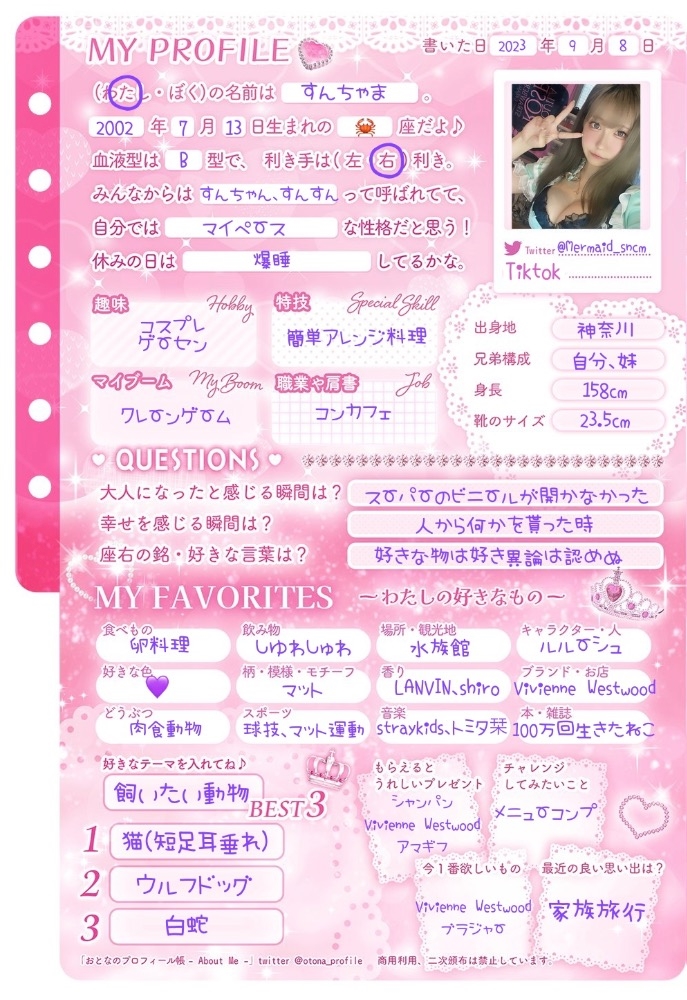 MY PROFILE
書いた日 2023 年 9 月 8 日
(わたし・ぼく)の名前は すんちゃま 。
2002 年 7 月 13 日生まれの 🦀 座だよ♪
血液型は B 型で、 利き手は(左・右)利き。
みんなからは すんちゃん、すんすん って呼ばれてて、
自分では マイペース な性格だと思う!
休みの日は 爆睡 してるかな。
Twitter @Mermaid_sncm
Tiktok
趣味 Hobby
コスプレ
ゲーセン
特技 Special Skill
簡単アレンジ料理
マイブーム My Boom
クレーンゲーム
職業や肩書 Job
コンカフェ
出身地 神奈川
兄弟構成 自分、妹
身長 158cm
靴のサイズ 23.5cm
QUESTIONS
大人になったと感じる瞬間は? スーパーのビニールが開かなかった
幸せを感じる瞬間は? 人から何かを貰った時
座右の銘・好きな言葉は? 好きな物は好き異論は認めぬ
MY FAVORITES ～わたしの好きなもの～
食べもの 卵料理
飲み物 しゆわしゅわ
場所・観光地 水族館
キャラクター・人 ルルーシュ
好きな色 💜
柄・模様・モチーフ マット
香り LANVIN、shiro
ブランド・お店 Vivienne Westwood
どうぶつ 肉食動物
スポーツ 球技、マット運動
音楽 straykids、トミタ栞
本・雑誌 100万回生きたねこ
好きなテーマを入れてね♪
飼いたい動物
BEST3
1 猫(短足耳垂れ)
2 ウルフドッグ
3 白蛇
もらえると
うれしいプレゼント
シャンパン
Vivienne Westwood
アマギフ
チャレンジ
してみたいこと
メニューコンプ
今1番欲しいもの
Vivienne Westwood
ブラジャー
最近の良い思い出は?
家族旅行
「おとなのプロフィール帳 - About Me -」twitter @otona_profile 商用利用、二次頒布は禁止しています。